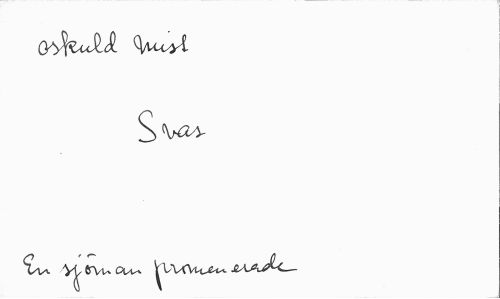 oskuld mist
Svas
En sjöman promenerade